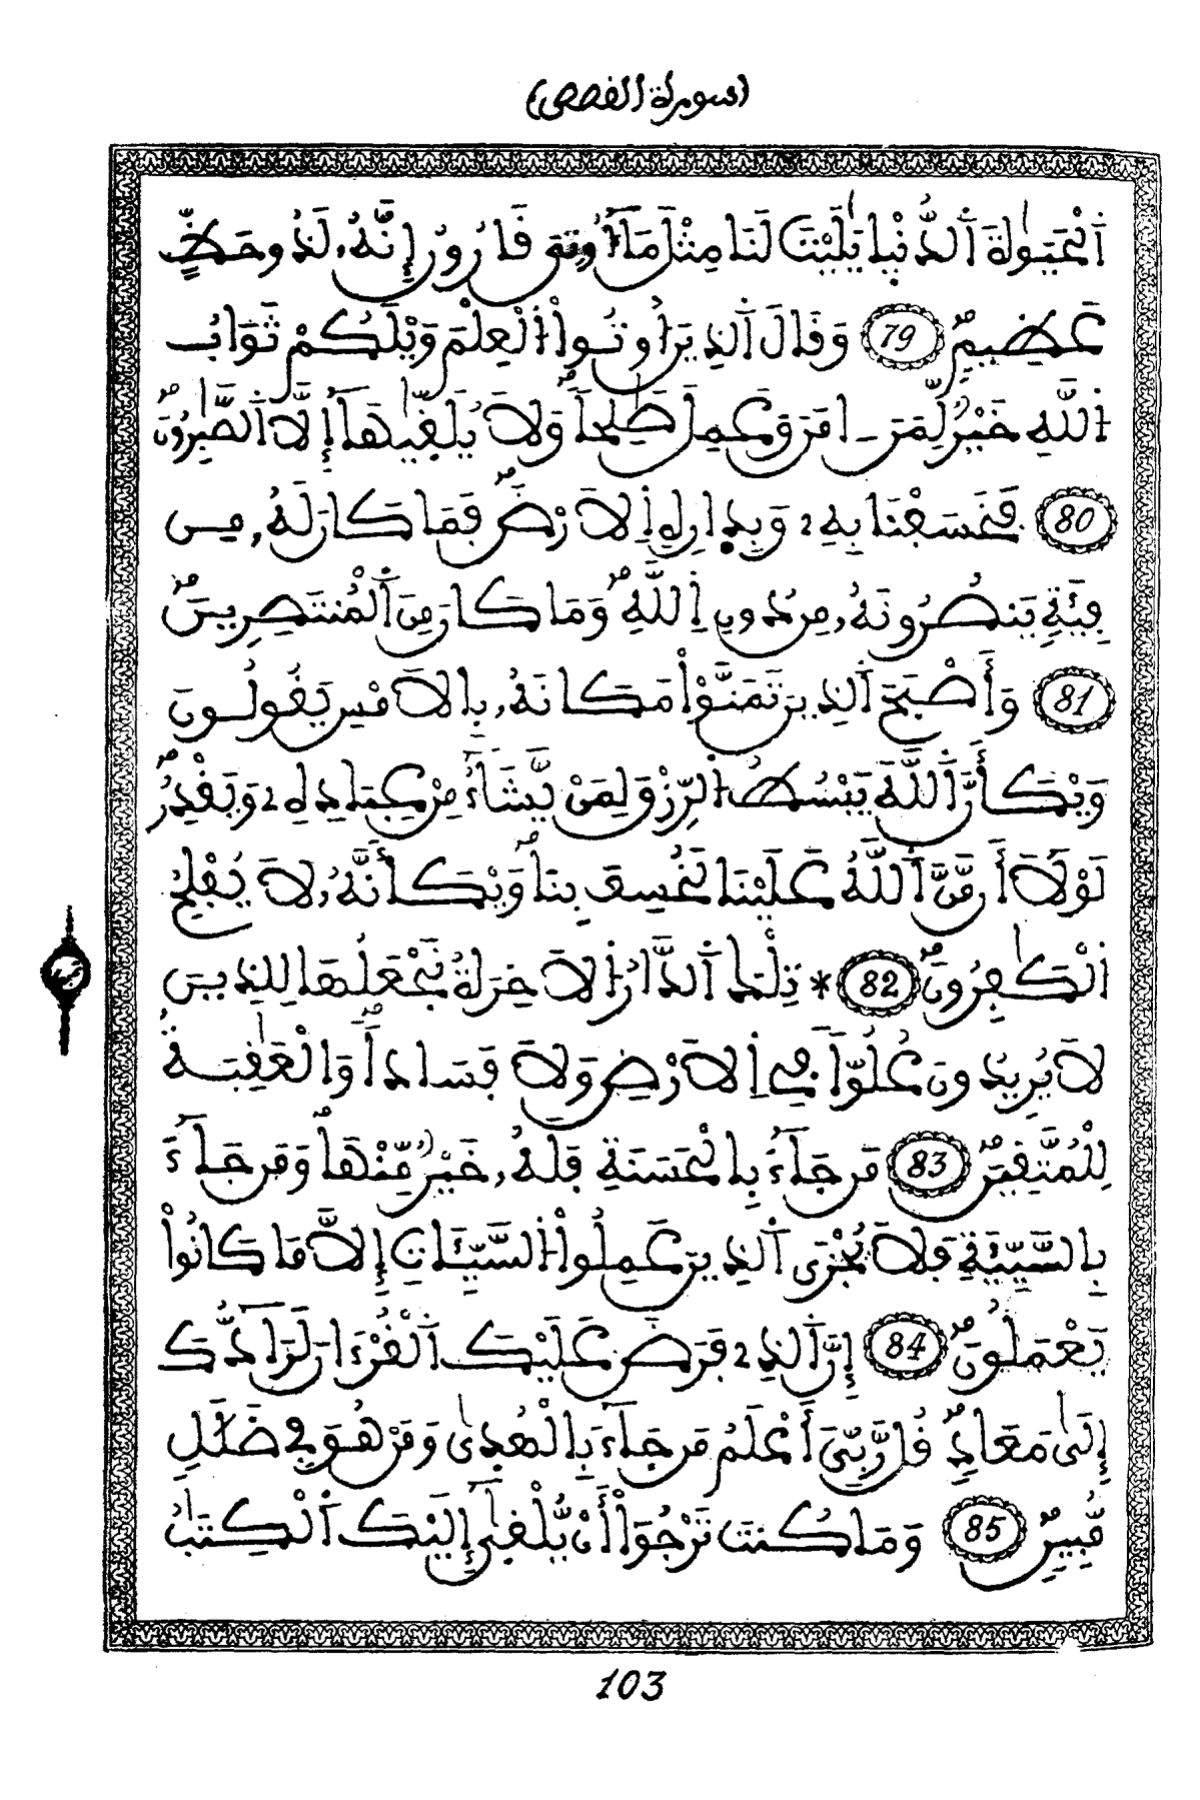 (سورة القصص)
اَ۬لْحَيَوٰةَ اَ۬لدُّنْي۪ا يَٰلَيْتَ لَنَا مِثْلَ مَآ أُوتِيَ قَٰرُونُ إِنَّهُۥ لَذُو حَظٍّ
عَظِيمٍۖ 79 وَقَالَ اَ۬لذِينَ أُوتُواْ اُ۬لْعِلْمَ وَيْلَكُمْ ثَوَابُ
اُ۬للَّهِ خَيْرٌ لِّمَنَ اٰمَنَ وَعَمِلَ صَٰلِحاٗۖ وَلَا يُلَقّ۪يٰهَآ إِلَّا اَ۬لصَّٰبِرُونَۖ
80 فَخَسَفْنَا بِهِۦ وَبِد۪ارِهِ اِ۬لَارْضَۖ فَمَا كَانَ لَهُۥ مِن
فِئَةٖ يَنصُرُونَهُۥ مِن دُونِ اِ۬للَّهِۖ وَمَا كَانَ مِنَ اَ۬لْمُنتَصِرِينَۖ
81 وَأَصْبَحَ اَ۬لذِينَ تَمَنَّوْاْ مَكَانَهُۥ بِالَامْسِ يَقُولُونَ
وَيْكَأَنَّ اَ۬للَّهَ يَبْسُطُ اُ۬لرِّزْقَ لِمَنْ يَّشَآءُ مِنْ عِبَادِهِۦ وَيَقْدِرُۖ
لَوْلَآ أَن مَّنَّ اَ۬للَّهُ عَلَيْنَا لَخُسِفَ بِنَاۖ وَيْكَأَنَّهُۥ لَا يُفْلِحُ
اُ۬لْكَٰفِرُونَۖ 82 * تِلْكَ اَ۬لدَّارُ اُ۬لَاخِرَةُ نَجْعَلُهَا لِلذِينَ
لَا يُرِيدُونَ عُلُوّاٗ فِي اِ۬لَارْضِ وَلَا فَسَاداٗۖ وَالْعَٰقِبَةُ
لِلْمُتَّقِينَۖ 83 مَن جَآءَ بِالْحَسَنَةِ فَلَهُۥ خَيْرٌ مِّنْهَاۖ وَمَن جَآءَ
بِالسَّيِّئَةِ فَلَا يُجْزَى اَ۬لذِينَ عَمِلُواْ اُ۬لسَّيِّـَٔاتِ إِلَّا مَا كَانُواْ
يَعْمَلُونَۖ 84 إِنَّ اَ۬لذِے فَرَضَ عَلَيْكَ اَ۬لْقُرْءَانَ لَرَآدُّكَ
إِلَىٰ مَعَادٖۖ قُل رَّبِّيَ أَعْلَمُ مَن جَآءَ بِالْهُد۪ىٰ وَمَنْ هُوَ فِي ضَلَٰلٖ
مُّبِينٖۖ 85 وَمَا كُنتَ تَرْجُوٓاْ أَنْ يُّلْق۪ىٰٓ إِلَيْكَ اَ۬لْكِتَٰبُ
103